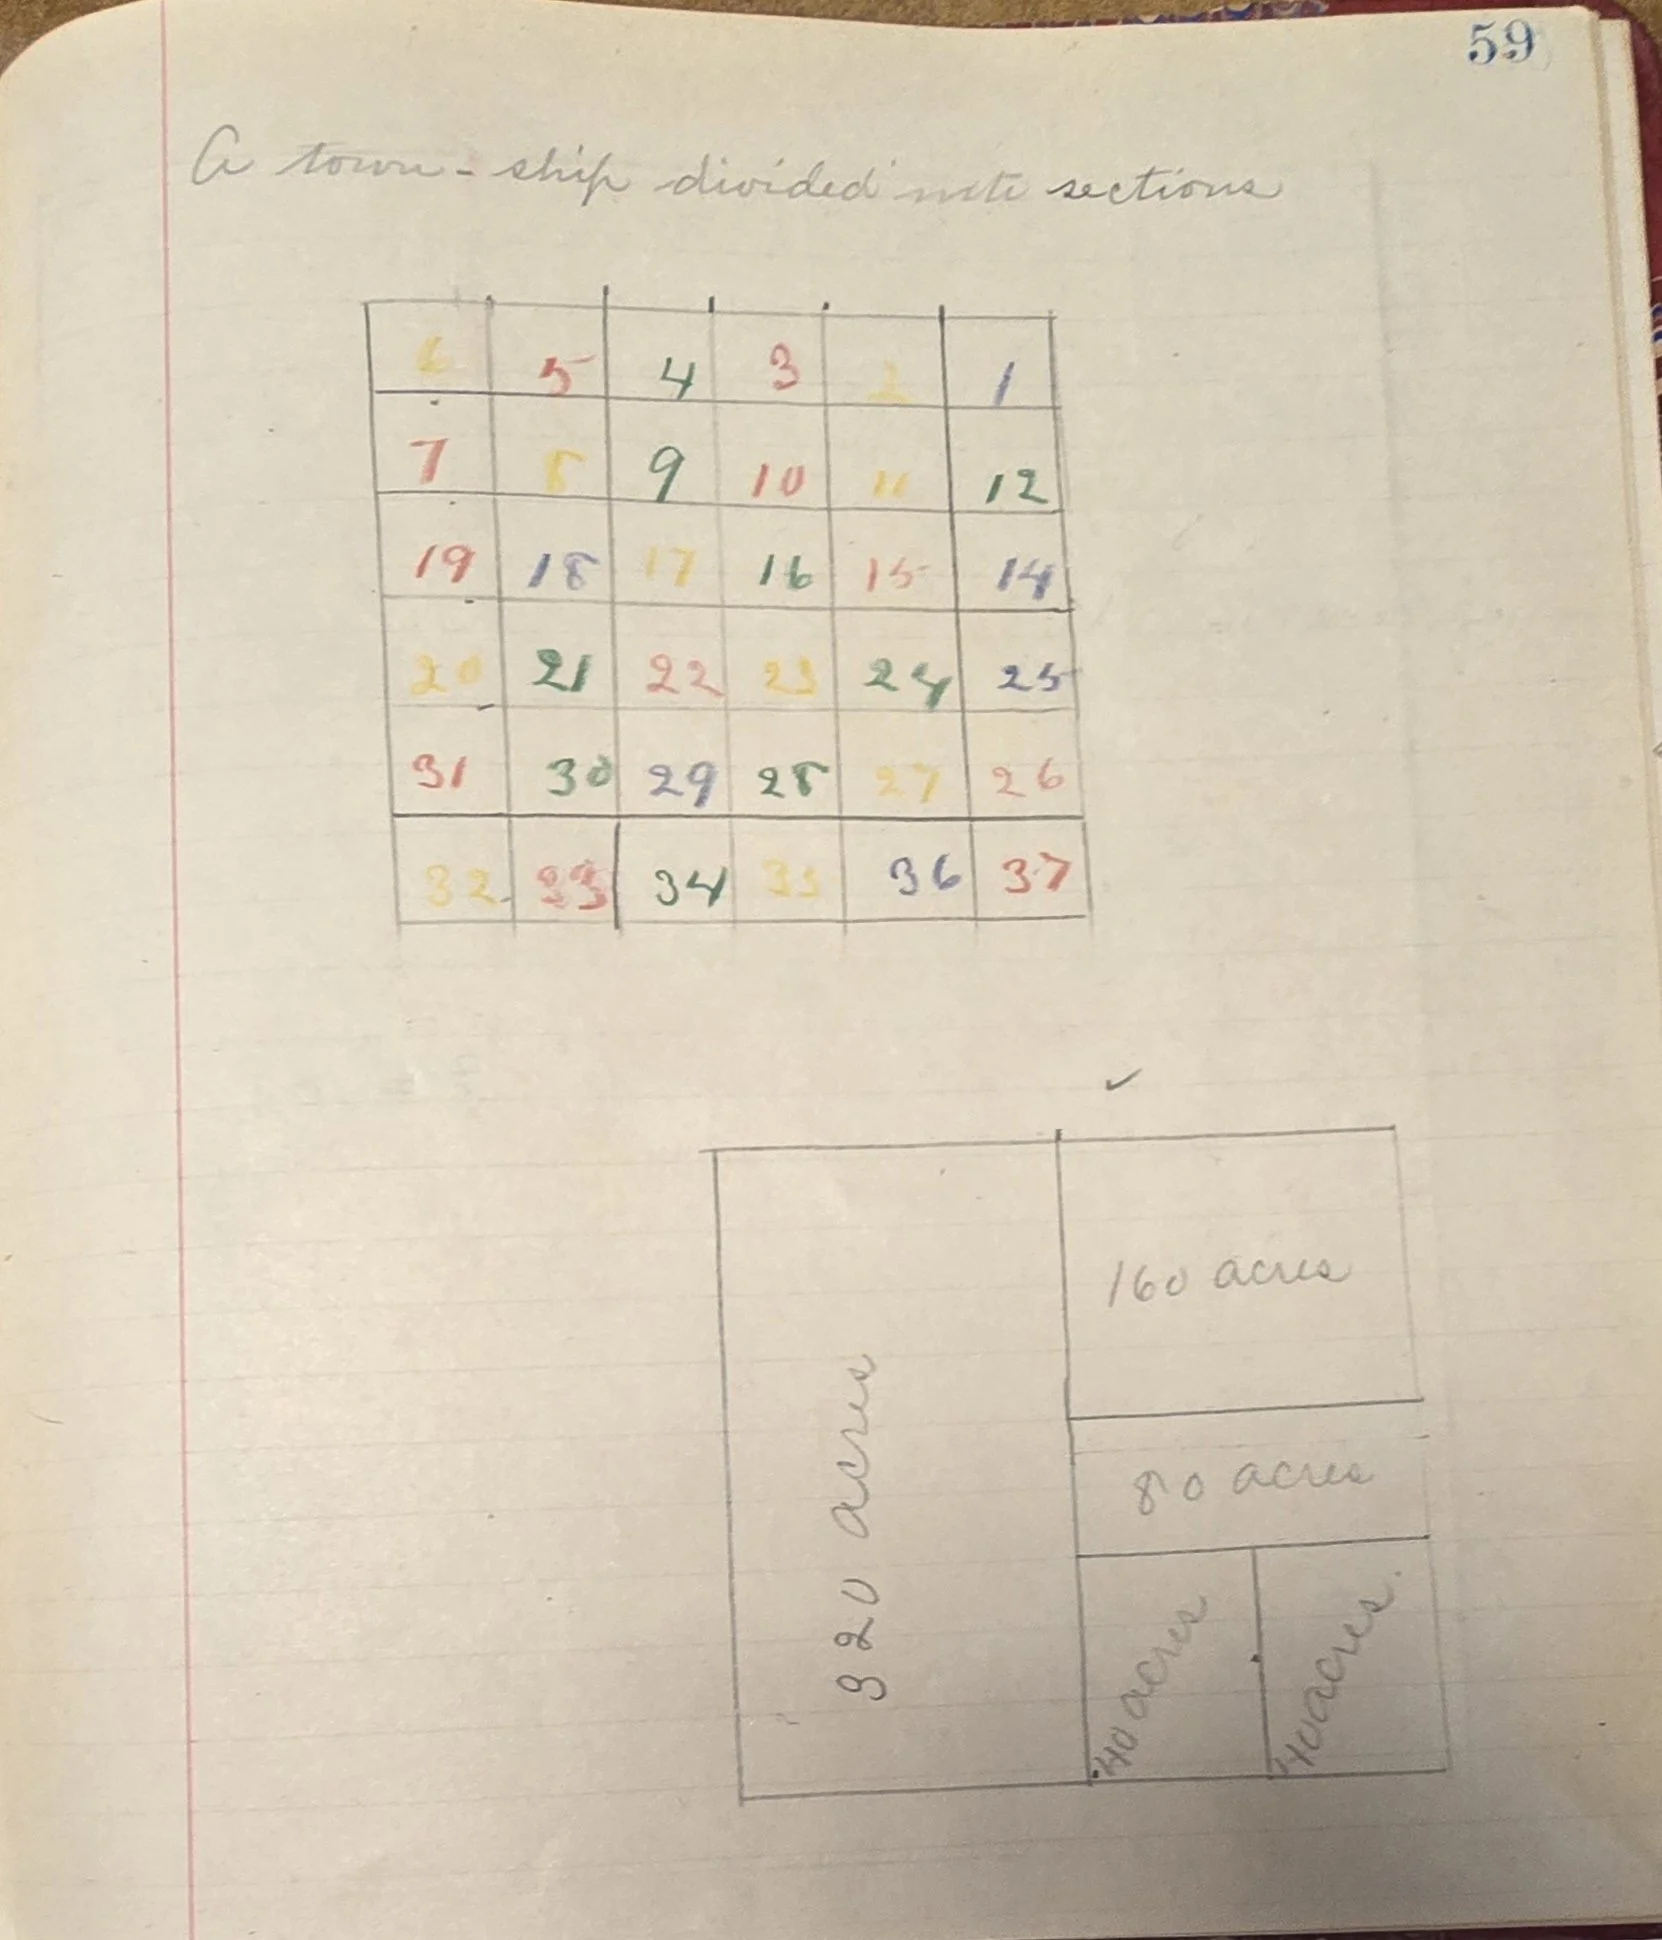 59
A town-ship divided into sections
6 5 4 3 2 1
7 8 9 10 11 12
19 18 17 16 15 14
20 21 22 23 24 25
31 30 29 28 27 26
32 33 34 35 36 37
320 acres
160 acres
80 acres
40 acres
40 acres.